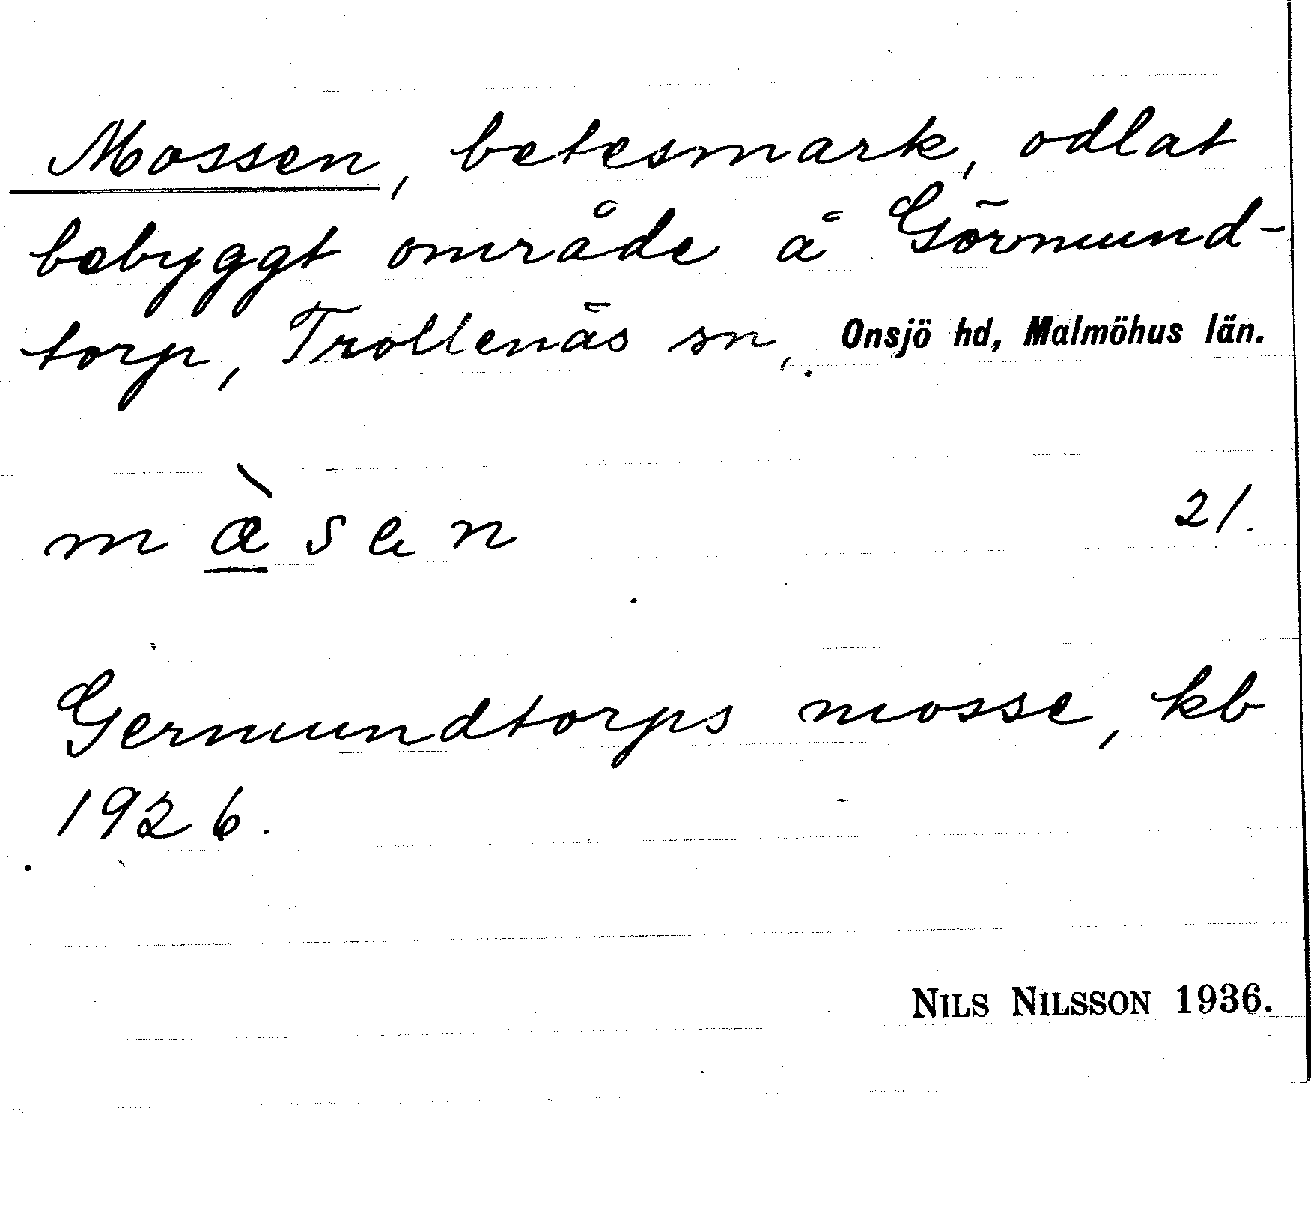 Mossen, betesmark, odlat
bebyggt område å Görmund-
torp, Trollenäs sn, Onsjö hd, Malmöhus län.
m æ̀ s e n 21.
Germundtorps mosse, kb
1926.
NILS NILSSON 1936.